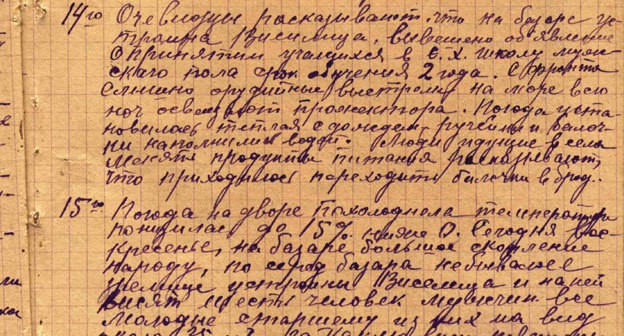 14го Очевидцы рассказывают что на базаре ус
троина виселица, вывешено обявление
о принятии учащихся в С.Х. школу муж
ского пола срок обучения 2 года. С фронта
слышно орудийные выстрелы на море всю
ноч освещают прожектора. Погода уста
новилась теплая с дождем, ручейи и балоч
ки наполнились водой. Люди идущие в села
менять продукты питания рассказывают,
что приходилось переходить балочки в брод.
15го Погода на дворе похолоднола температура
понизилась до 15% ниже 0. Сегодня вос
кресенье, на базаре большое скопление
народу, по серед базара небывалое
зрелище устроины виселица и на ней
висят шесть человек мужчин все
молодые старшему из них на вид